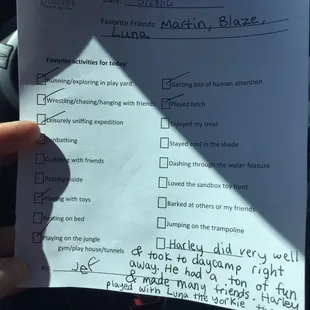 Date:
Favorite Friends: Martin, Blaze,
Luna
Favorite activities for today:
Running/exploring in play yard
Getting lots of human attention
Wrestling/chasing/hanging with friends
Played fetch
Leisurely sniffing expedition
Enjoyed my treat
Sunbathing
Stayed cool in the shade
Cuddling with friends
Dashing through the water feature
Resting inside
Loved the sandbox toy hunt
Playing with toys
Barked at others or my friends
Resting on bed
Jumping on the trampoline
Playing on the jungle
gym/play house/tunnels
Harley did very well
& took to daycamp right
away. He had a ton of fun
& made many friends. Harley
played with Luna the Yorkie